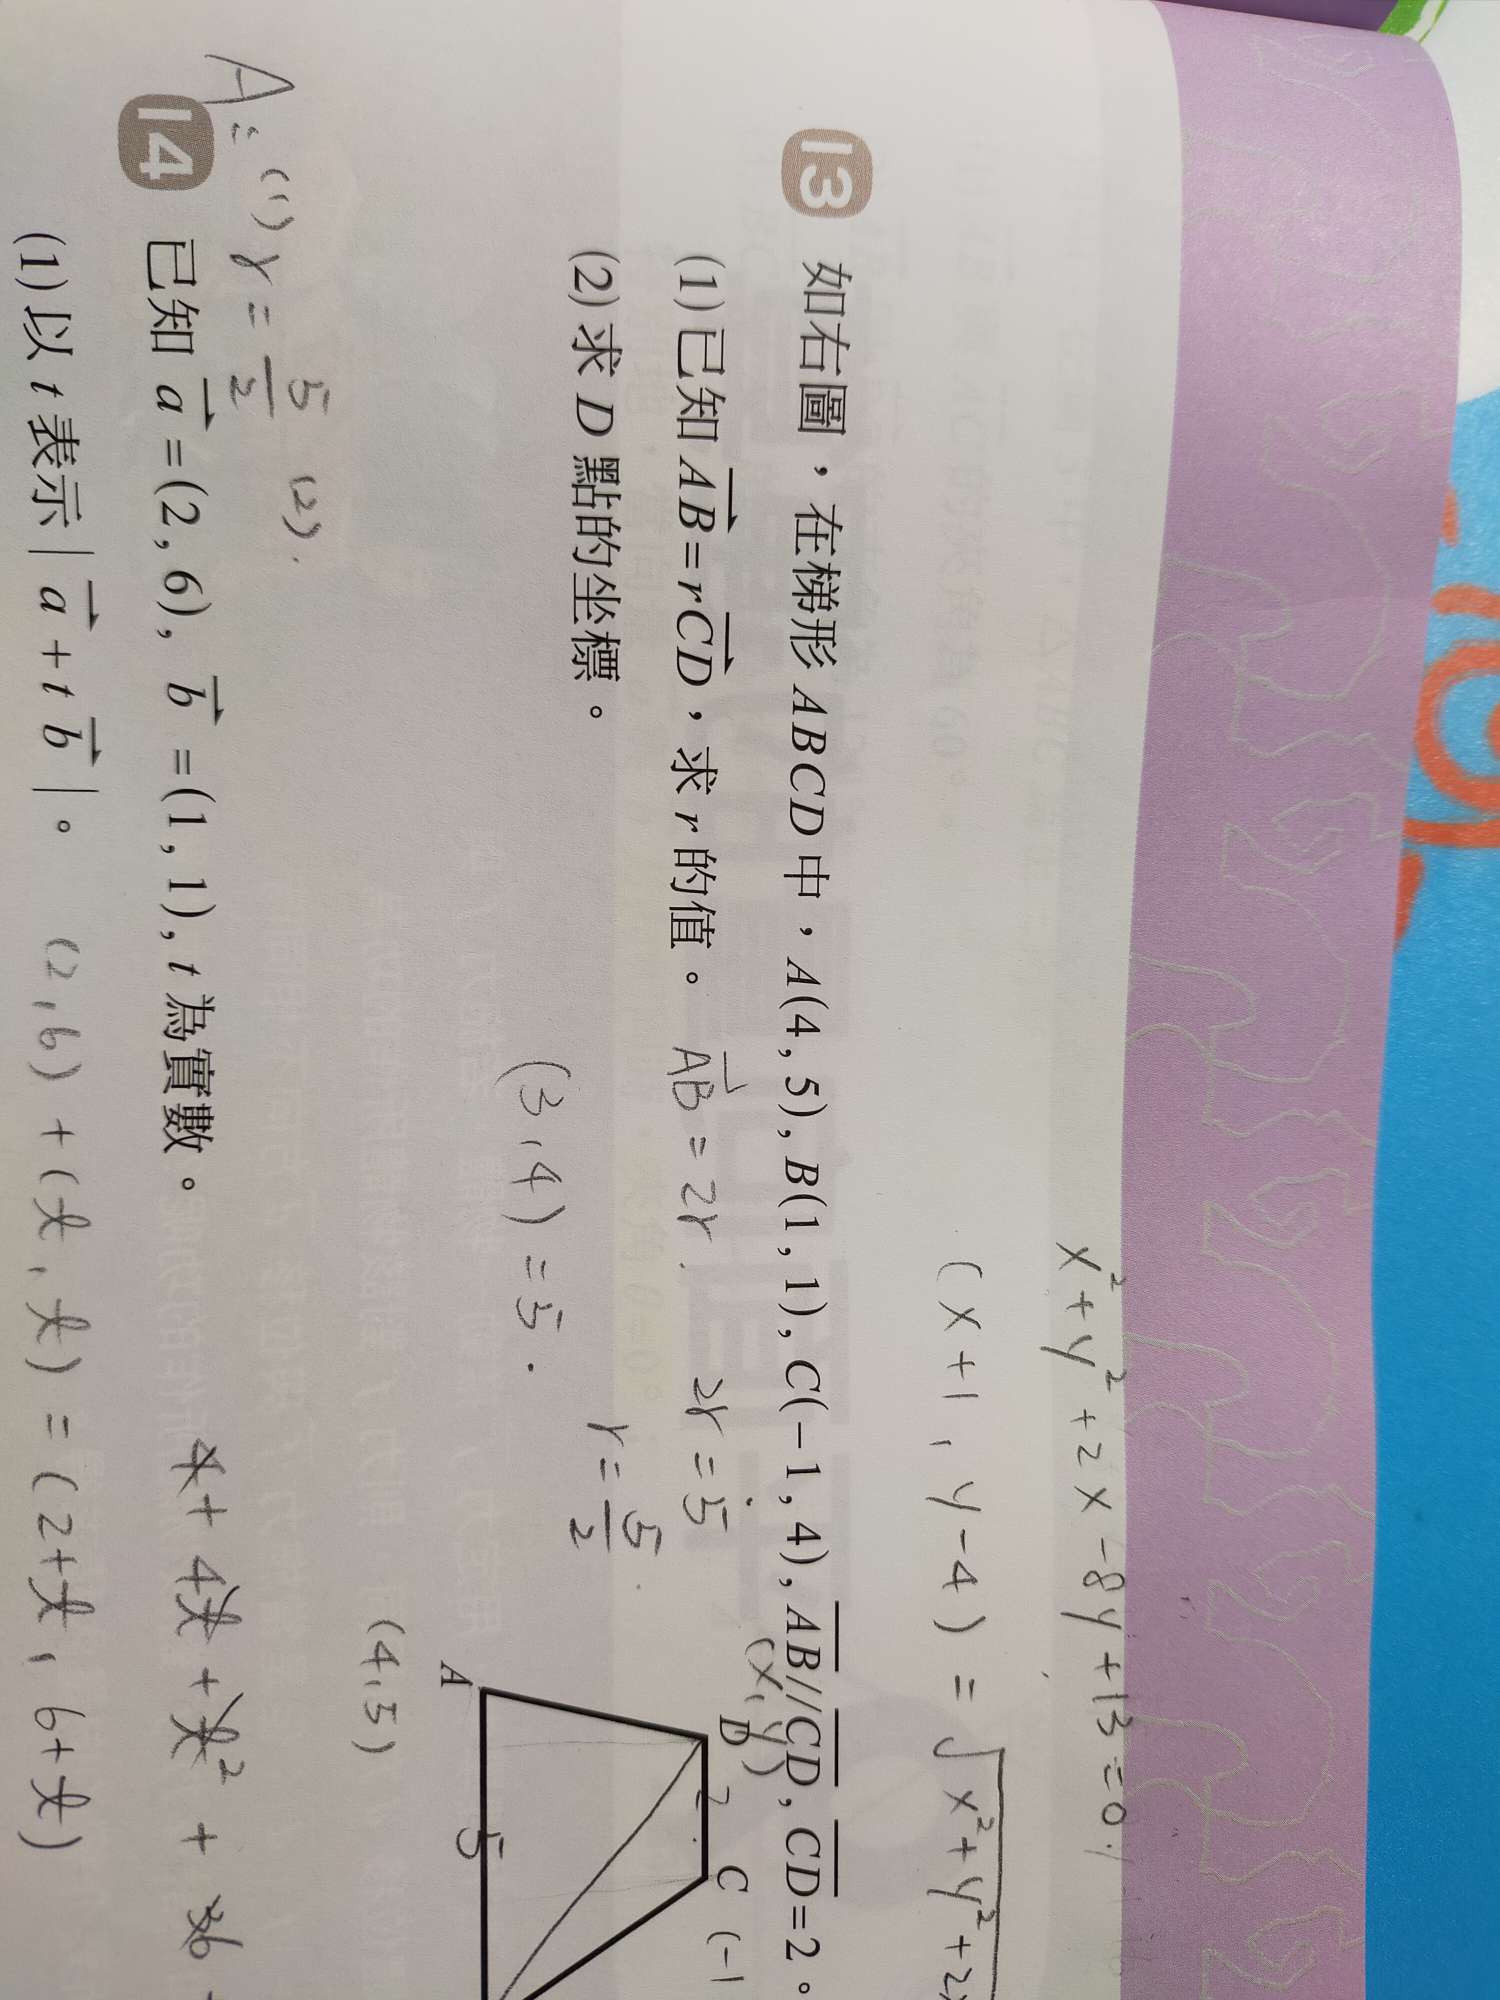 x²+y²+2x-8y+13=0
(x+1, y-4) = √x²+y²+2x
13 如右圖，在梯形 ABCD 中，A(4, 5), B(1, 1), C(-1, 4), AB//CD, CD=2。
(x, y)
(1) 已知 AB=rCD，求 r 的值。 AB = 2r. 2r = 5
r = 5/2
(2) 求 D 點的坐標。
(3, 4) = 5.
D 2 C (-1
A 5
(4, 5)
A: (1) r = 5/2 (2).
14 已知 a=(2, 6), b=(1, 1), t 為實數。
4+ 4t + t² + 36
(1) 以 t 表示 | a + t b |。 (2, 6) + (t, t) = (2+t, 6+t)